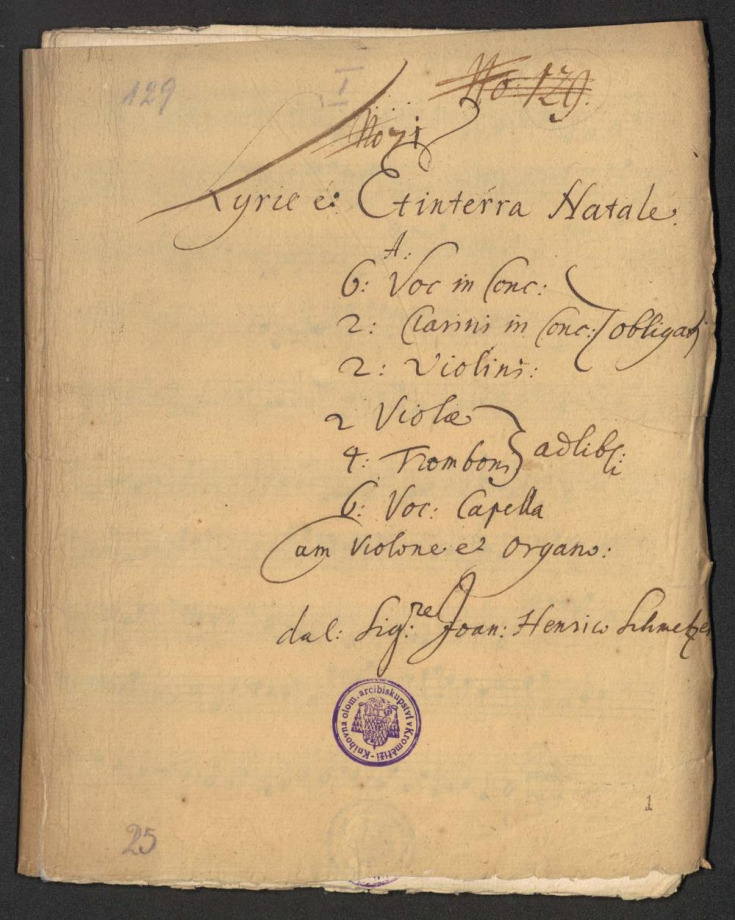 129
I
No 129.
No 71
Kyrie è: Et in terra Natale.
A:
6: Voc in Conc:
2: Clarini in Conc: obligati
2: Violini:
2 Violæ
4: Tromboni adlib:
6: Voc: Capella
Cum Violone et Organo:
dal: Sig:re Joan: Henrico Schmelzer
Knihovna olom. arcibiskupství v Kroměříži
1
25